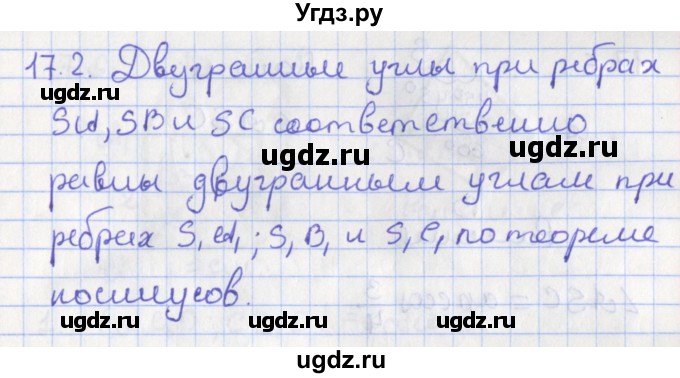 Угдз.ру
17.2. Двугранные углы при ребрах
SA, SB и SC соответственно
равны двугранным углам при
ребрах S₁A₁; S₁B₁ и S₁C₁ по теореме
косинусов.
ugdz.ru ugdz.ru
ugdz.ru ugdz.ru
ugdz.ru ugdz.ru
ugdz.ru ugdz.ru
ugdz.ru ugdz.ru
ugdz.ru